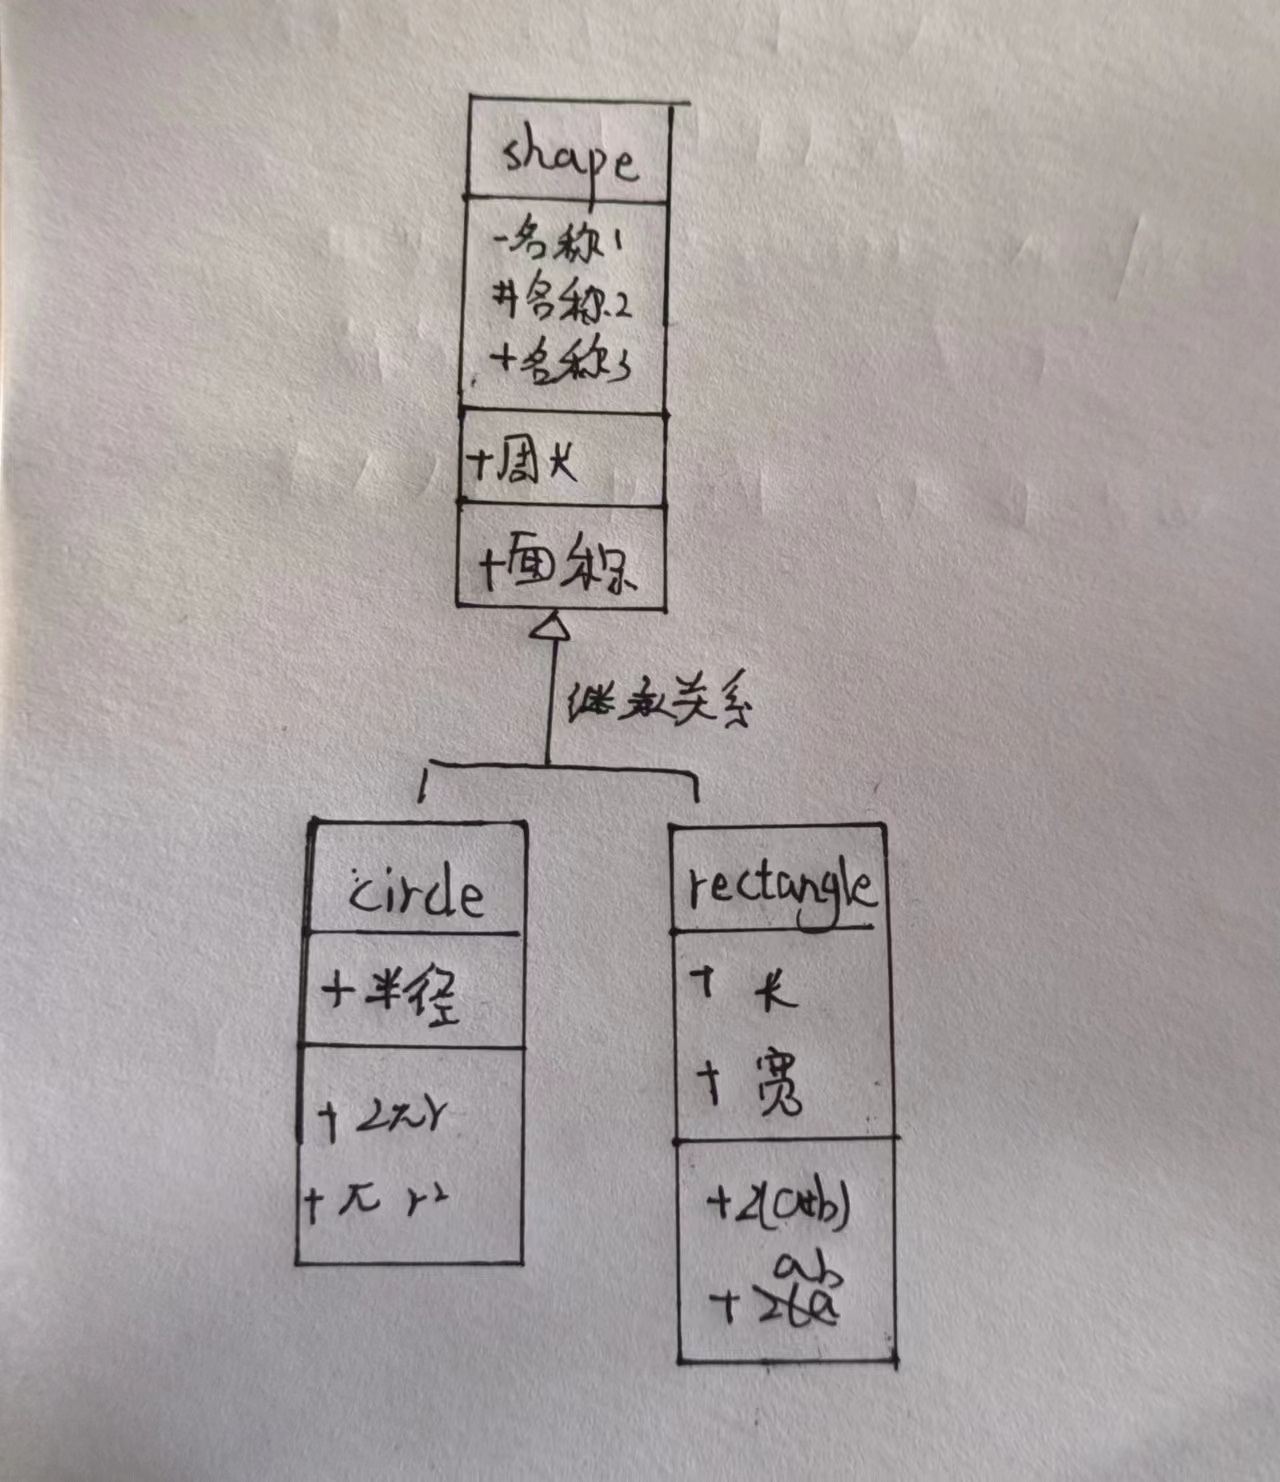 shape
-名称1
#名称2
+名称3
+周长
+面积
继承关系
circle
+半径
+2πr
+π r²
rectangle
+ 长
+ 宽
+2(a+b)
ab
+